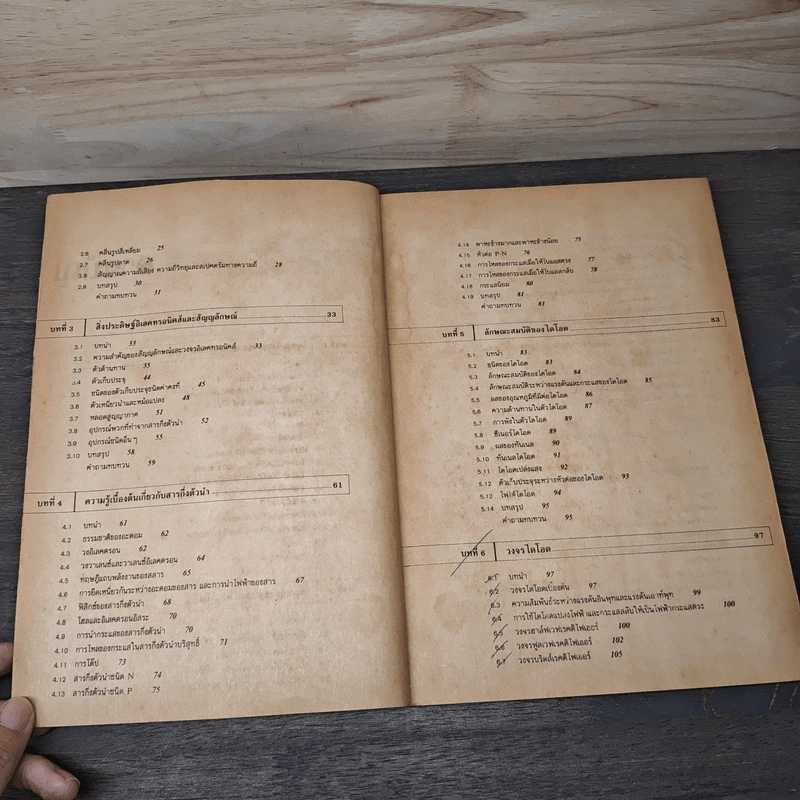 2.6 คลื่นรูปสี่เหลี่ยม 25
2.7 คลื่นรูปลาด 26
2.8 สัญญาณความถี่เสียง ความถี่วิทยุและสเปคตรัมทางความถี่ 28
2.9 บทสรุป 30
คำถามทบทวน 31
บทที่ 3 สิ่งประดิษฐ์อิเลคทรอนิคส์และสัญญลักษณ์ 33
3.1 บทนำ 33
3.2 ความสำคัญของสัญญลักษณ์และวงจรอิเลคทรอนิคส์ 33
3.3 ตัวต้านทาน 35
3.4 ตัวเก็บประจุ 44
3.5 ชนิดของตัวเก็บประจุชนิดค่าคงที่ 45
3.6 ตัวเหนี่ยวนำและหม้อแปลง 48
3.7 หลอดสูญญากาศ 51
3.8 อุปกรณ์พวกที่ทำจากสารกึ่งตัวนำ 52
3.9 อุปกรณ์ชนิดอื่น ๆ 55
3.10 บทสรุป 58
คำถามทบทวน 59
บทที่ 4 ความรู้เบื้องต้นเกี่ยวกับสารกึ่งตัวนำ 61
4.1 บทนำ 61
4.2 ธรรมชาติของอะตอม 62
4.3 วงอิเลคตรอน 62
4.4 วงวาเลนซ์และวาเลนซ์อิเลคตรอน 64
4.5 ทฤษฎีแถบพลังงานของสสาร 65
4.6 การยึดเหนี่ยวกันระหว่างอะตอมของสาร และการนำไฟฟ้าของสาร 67
4.7 ฟิสิกซ์ของสารกึ่งตัวนำ 68
4.8 โฮลและอิเลคตรอนอิสระ 70
4.9 การนำกระแสของสารกึ่งตัวนำ 70
4.10 การไหลของกระแสในสารกึ่งตัวนำบริสุทธิ์ 71
4.11 การโด๊ป 73
4.12 สารกึ่งตัวนำชนิด N 74
4.13 สารกึ่งตัวนำชนิด P 75
4.14 พาหะข้างมากและพาหะข้างน้อย 75
4.15 หัวต่อ P-N 76
4.16 การไหลของกระแสเมื่อให้ไบแอสตรง 77
4.17 การไหลของกระแสเมื่อให้ไบแอสกลับ 78
4.18 กระแสนิยม 80
4.19 บทสรุป 81
คำถามทบทวน 81
บทที่ 5 ลักษณะสมบัติของไดโอด 83
5.1 บทนำ 83
5.2 ชนิดของไดโอด 83
5.3 ลักษณะสมบัติของไดโอด 84
5.4 ลักษณะสมบัติระหว่างแรงดันและกระแสของไดโอด 85
5.5 ผลของอุณหภูมิที่มีต่อไดโอด 86
5.6 ความต้านทานในตัวไดโอด 87
5.7 การพังในตัวไดโอด 89
5.8 ซีเนอร์ไดโอด 89
5.9 ผลของทันเนล 90
5.10 ทันเนลไดโอด 91
5.11 ไดโอดเปล่งแสง 92
5.12 ตัวเก็บประจุระหว่างหัวต่อของไดโอด 93
5.13 โฟโต้ไดโอด 94
5.14 บทสรุป 95
คำถามทบทวน 95
บทที่ 6 วงจรไดโอด 97
6.1 บทนำ 97
6.2 วงจรไดโอดเบื้องต้น 97
6.3 ความสัมพันธ์ระหว่างแรงดันอินพุทและแรงดันเอาท์พุท 99
6.4 การใช้ไดโอดแปลงไฟฟ้ากระแสสลับให้เป็นไฟฟ้ากระแสตรง 100
6.5 วงจรฮาล์ฟเวฟเรคติไฟเออร์ 100
6.6 วงจรฟูลเวฟเรคติไฟเออร์ 102
6.7 วงจรบริดส์เรคติไฟเออร์ 105